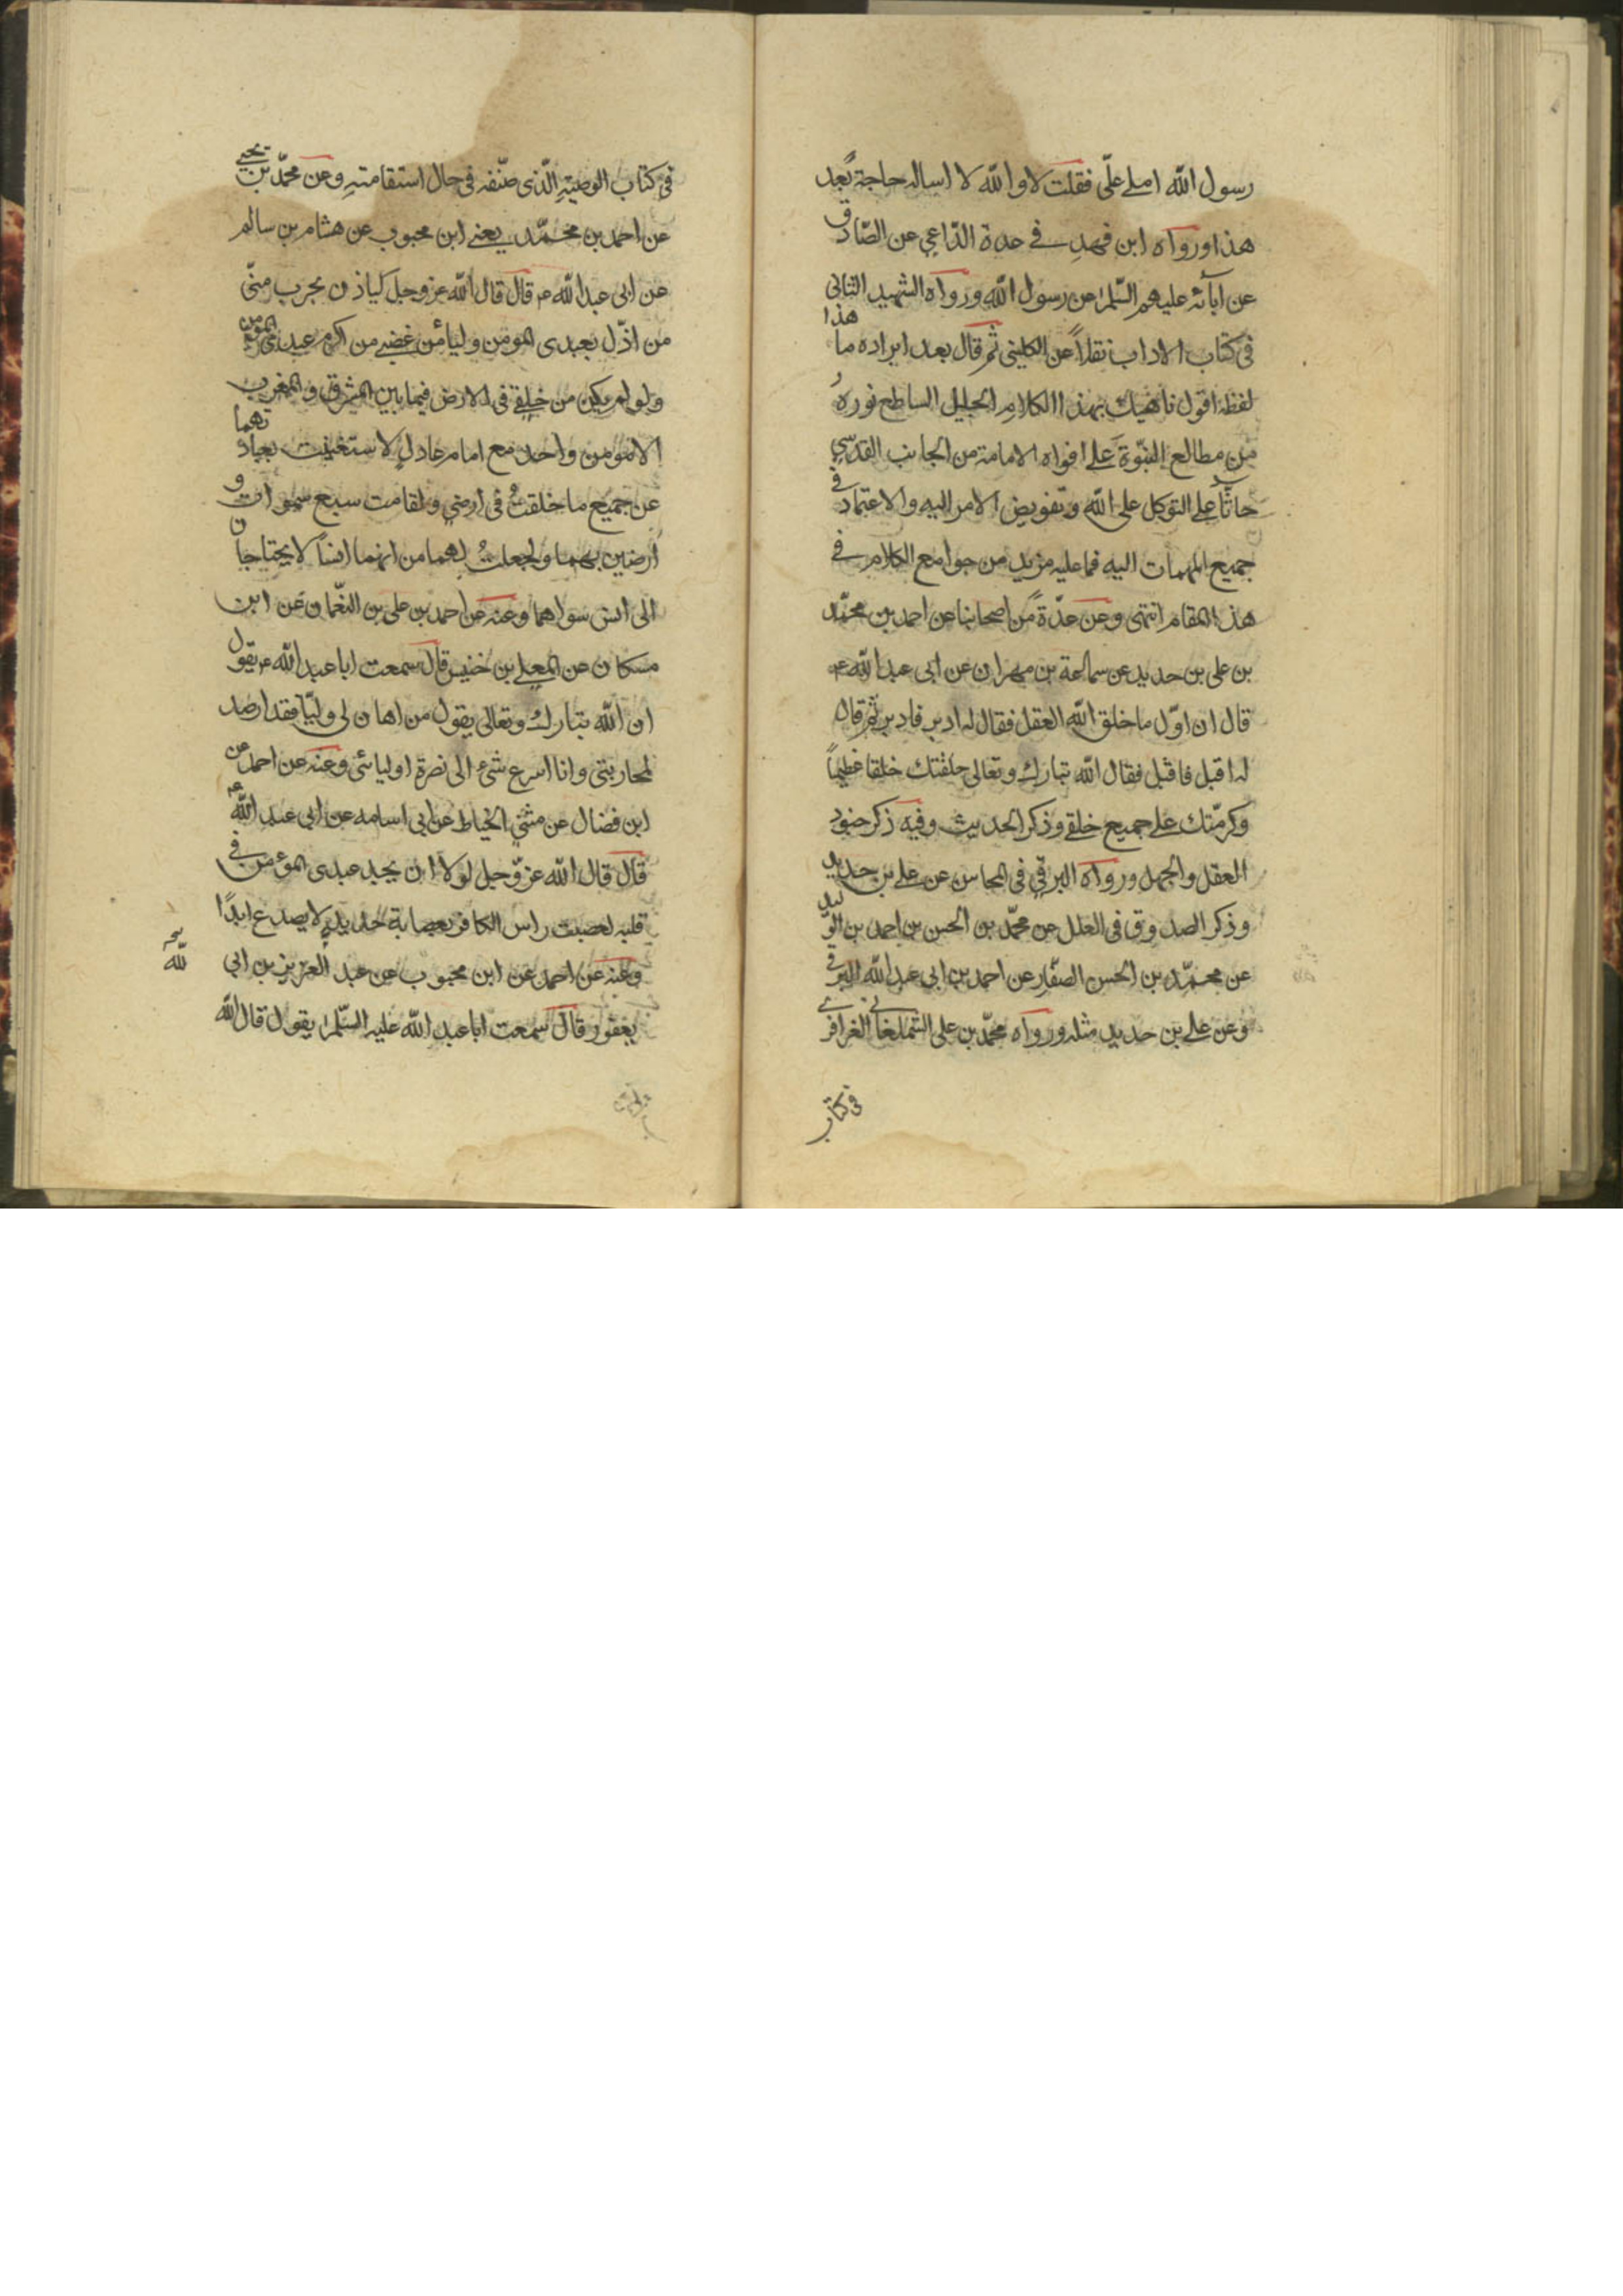 رسول الله املى علّى فقلت لا والله لا اساله حاجة بعد
هذا ورواه ابن فهد في عدة الداعي عن الصّادق
عن ابآئه عليهم السّلم عن رسول الله ورواه الشهيد الثانى
فى كتاب الاداب نقلاً عن الكلينى ثم قال بعد ايراده ما هذا
لفظه اقول ناهيك بهذا الكلام الجليل الساطع نوره
من مطالع النبّوة على افواه الامامة من الجانب القدسي
حاثّا على التوكل على الله وتفويض الامر اليه والاعتماد فى
جميع المهمات اليه فما عليه مزيد من جوامع الكلام في
هذا المقام انتهى وعن عدّة من اصحابنا عن احمد بن محمّد
بن على بن حديد عن سماعة بن مهران عن ابى عبد الله ع
قال ان اوّل ما خلق الله العقل فقال له ادبر فادبر ثم قال
له اقبل فاقبل فقال الله تبارك وتعالى خلقتك خلقا عظيماً
وكرمّتك على جميع خلقي وذكر الحديث وفيه ذكر جنود
العقل والجهل ورواه البرقي فى المحاسن عن على بن حديد
وذكر الصدوق فى العلل عن محمّد بن الحسن بن احمد بن الوليد
عن محمّد بن الحسن الصفّار عن احمد بن ابي عبد الله البرقى
وعن على بن حديد مثله ورواه محمّد بن على الشلمغانى العزاقرى
فى كتاب
فى كتاب الوصيّة الّذى صنّفه فى حال استقامته وعن محمّد بن يحيى
عن احمد بن محمّد يعنى ابن محبوب عن هشام بن سالم
عن ابى عبد الله ع قال قال الله عز وجل لياذن بحرب منّى
من اذّل بعبدى المومن وليأمن غضبى من اكرم عبدى المومن
ولو لم يكن من خلقي فى الارض فيما بين المشرق والمغرب
الا مومن واحد مع امام عادل لاستغنيت بعبادتهما
عن جميع ما خلقت فى ارضي ولقامت سبع سموات و
ارضين بهما ولجعلتُ لهما من ايمانهما انساً لا يحتاجان
الى انس سواهما وعنه عن احمد بن على بن النعّمان عن ابن
مسكان عن المعلى بن خنيس قال سمعت ابا عبد الله ع يقول
ان الله تبارك وتعالى يقول من اهان لى وليّا فقد ارصد
لمحاربتى وانا اسرع شىء الى نصرة اوليائى وعنه عن احمد عن
ابن فضال عن مثنى الخياط عن ابى اسامه عن ابي عبد الله ع
قال قال الله عزّ وجل لولا ان يجد عبدى المومن فى
قلبه لعصبت راس الكافر بعصابة حديد لا يصدع ابدًا
وعنه عن احمد عن ابن محبوب عن عبد العزيز بن ابي
يعفور قال سمعت ابا عبد الله عليه السّلم يقول قال الله